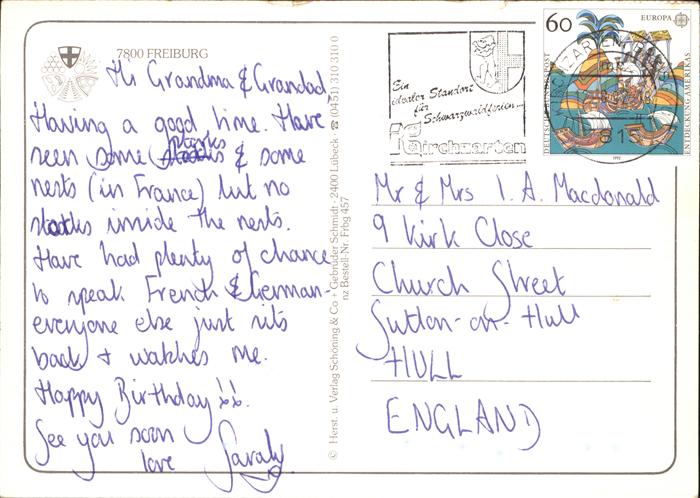 7800 FREIBURG
Hi Grandma & Grandad
Having a good time. Have
seen some storks & some
nests (in France) but no
storks inside the nests.
Have had plenty of chance
to speak French & German-
everyone else just sits
back + watches me.
Happy Birthday!!
See you soon
love Sarah
© Herst. u. Verlag Schöning & Co + Gebrüder Schmidt · 2400 Lübeck ☎ (0451) 310 310 0
nz Bestell-Nr. Frbg 457
Ein
idealer Standort
für
Schwarzwaldferien...
Kirchzarten
60
EUROPA
DEUTSCHE BUNDESPOST
ENTDECKUNG AMERIKAS
1992
KIRCHZARTEN
Mr & Mrs I. A. Macdonald
9 Kirk Close
Church Street
Sutton-on-Hull
HULL
ENGLAND